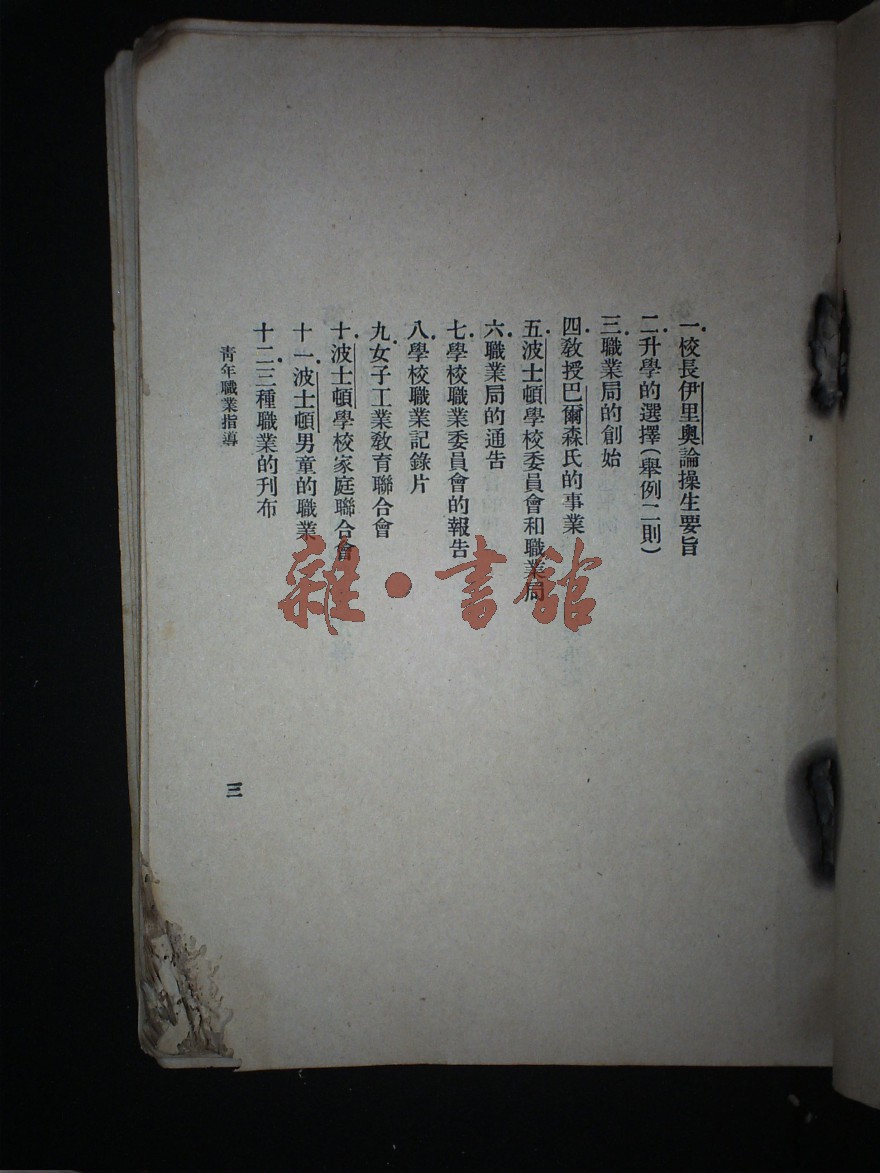 一.校長伊里奧論操生要旨
二.升學的選擇(舉例二則)
三.職業局的創始
四.教授巴爾森氏的事業
五.波士頓學校委員會和職業局
六.職業局的通告
七.學校職業委員會的報告
八.學校職業記錄片
九.女子工業教育聯合會
十.波士頓學校家庭聯合會
十一.波士頓男童的職業
十二.三種職業的刋布
青年職業指導
三
雜·書館